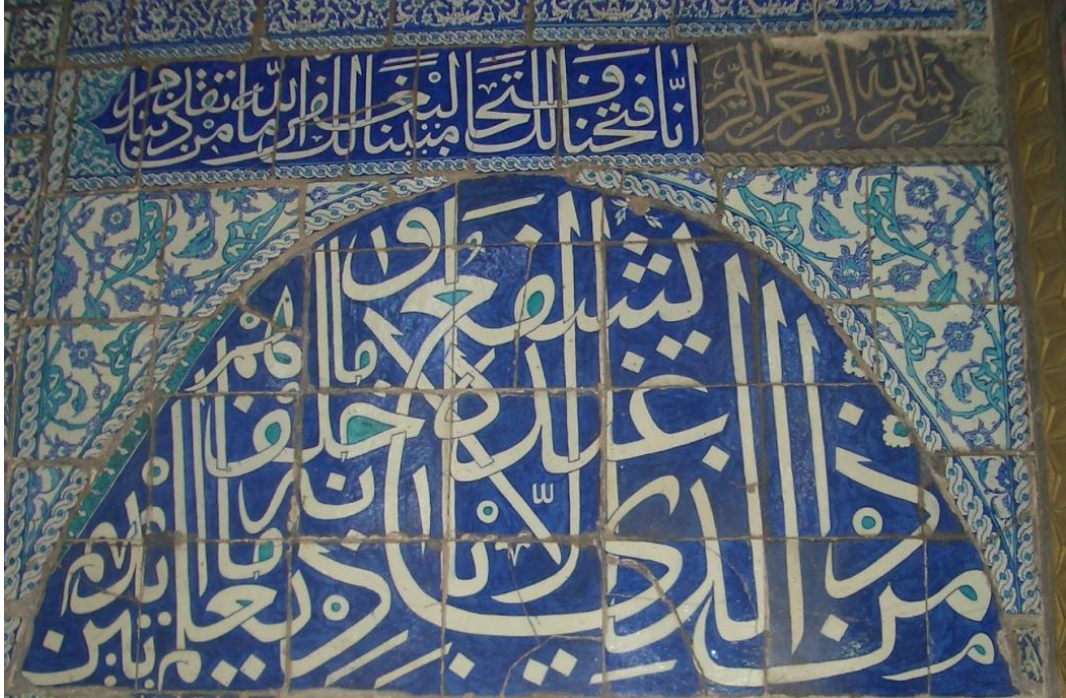 بسم الله الرحمن الرحيم انّا فتحنا لك فتحا مبينا ليغفر لك الله ما تقدم من ذنبك
من ذا الذي يشفع عنده الّا باذنه يعلم ما بين ايديهم وما خلفهم